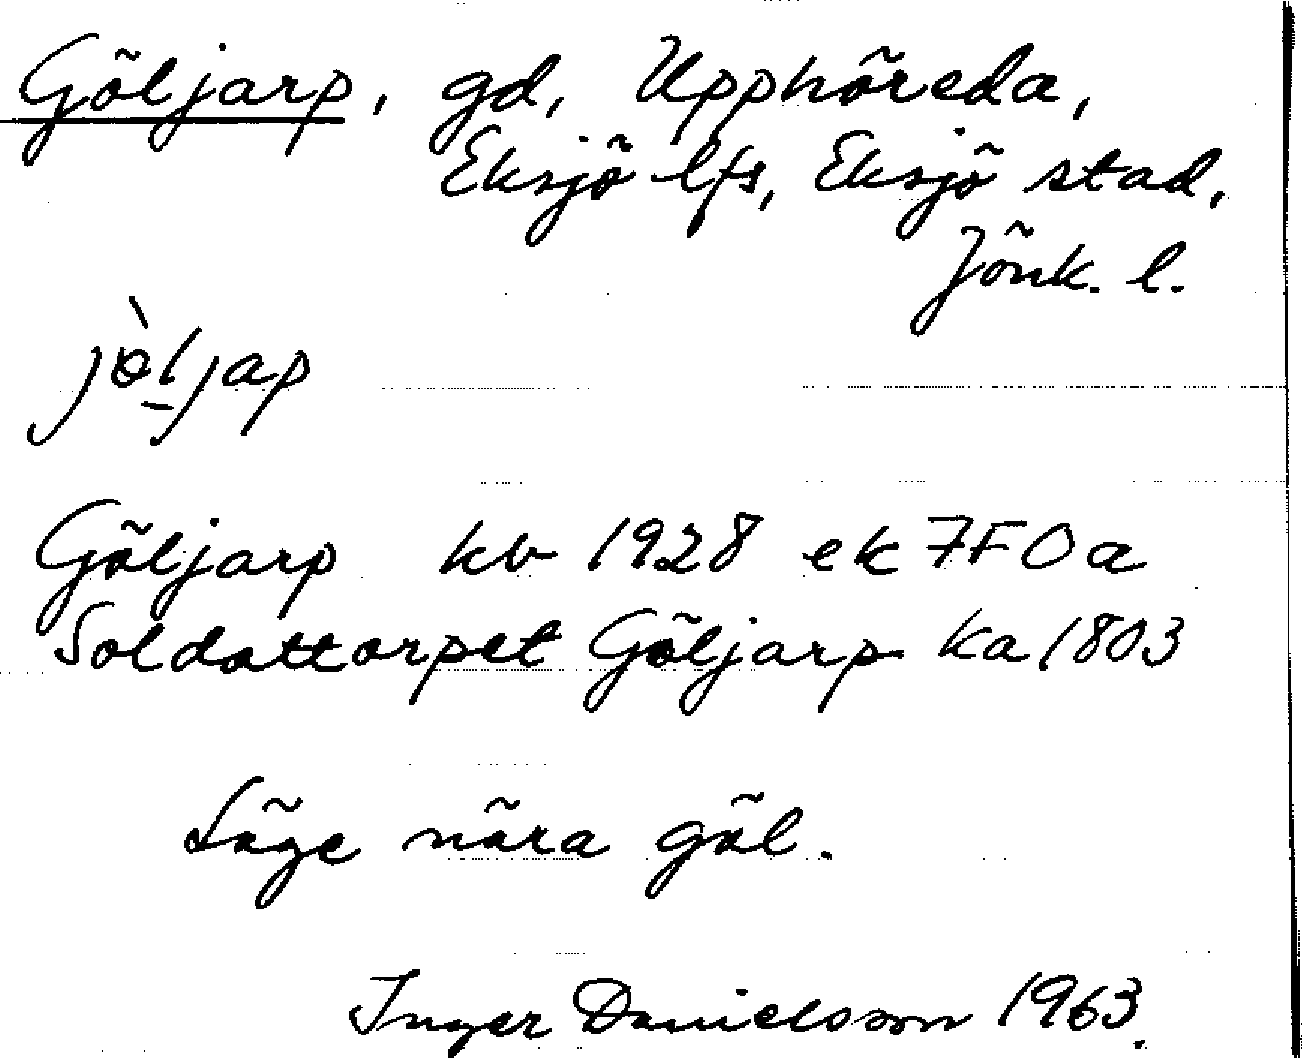 Göljarp, gd, Upphöreda,
Eksjö lfs, Eksjö stad,
Jönk. l.
jø̀l̠jap
Göljarp kv 1928 ek 7F0a
Soldattorpet Göljarp ka 1803
Läge nära göl.
Inger Danielsson 1963.